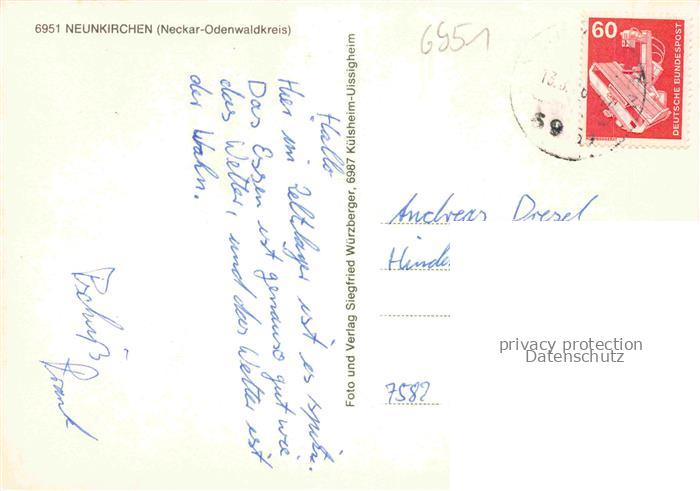 6951 NEUNKIRCHEN (Neckar-Odenwaldkreis)
6951
60
DEUTSCHE BUNDESPOST
59
Hallo
Hier im Zeltlager ist es spitze.
Das Essen ist genauso gut wie
das Wetter, und das Wetter ist
der Wahn.
Tschüß
Frank
Foto und Verlag Siegfried Würzberger, 6987 Külsheim-Uissigheim
Andreas Dresel
7582
privacy protection
Datenschutz